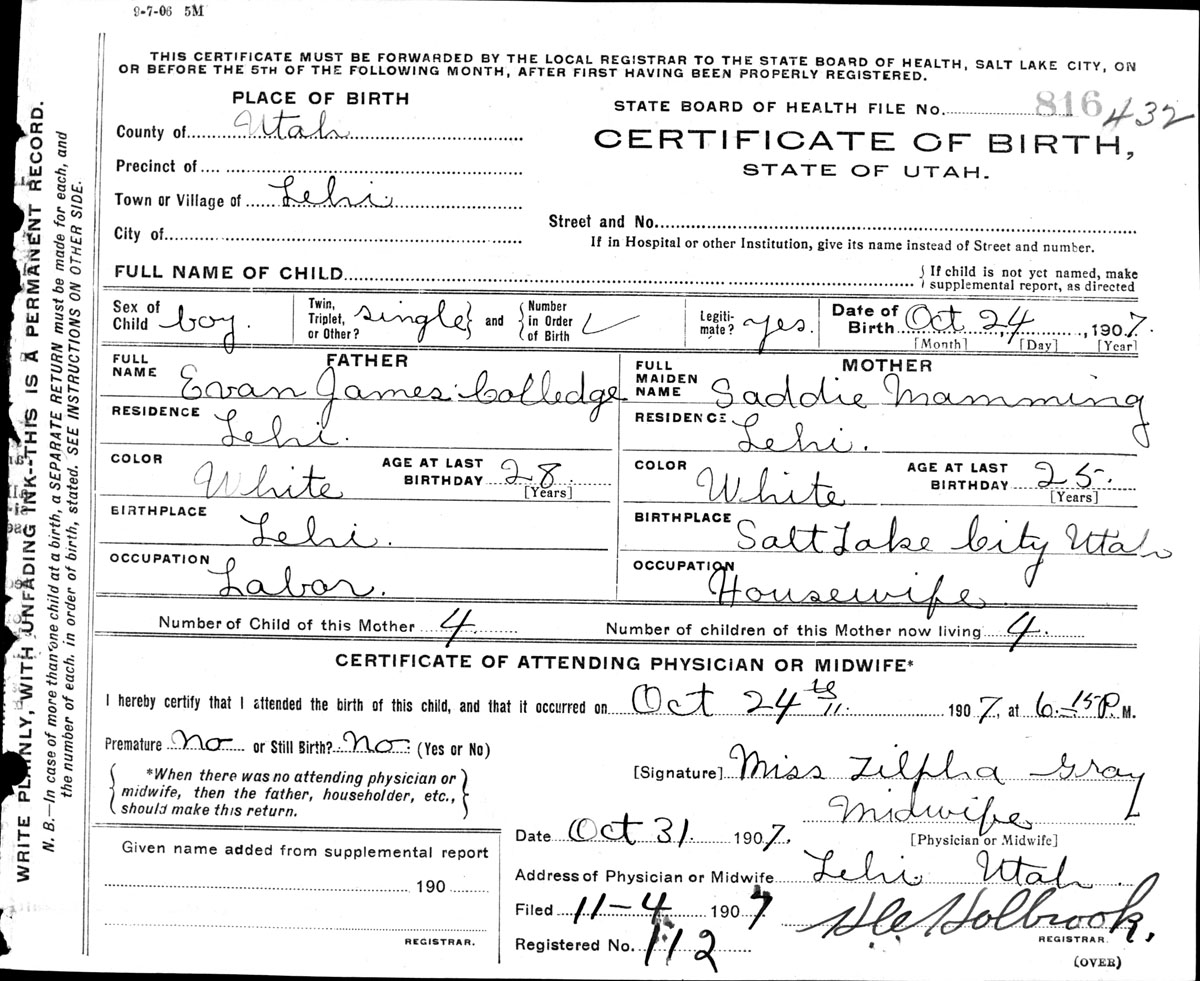 9-7-06 5M
THIS CERTIFICATE MUST BE FORWARDED BY THE LOCAL REGISTRAR TO THE STATE BOARD OF HEALTH, SALT LAKE CITY, ON
OR BEFORE THE 5TH OF THE FOLLOWING MONTH, AFTER FIRST HAVING BEEN PROPERLY REGISTERED.
WRITE PLAINLY, WITH UNFADING INK--THIS IS A PERMANENT RECORD.
N. B.—In case of more than one child at a birth, a SEPARATE RETURN must be made for each, and
the number of each, in order of birth, stated. SEE INSTRUCTIONS ON OTHER SIDE.
PLACE OF BIRTH
County of Utah
Precinct of
Town or Village of Lehi
City of
STATE BOARD OF HEALTH FILE No. 816 432
CERTIFICATE OF BIRTH,
STATE OF UTAH.
Street and No.
If in Hospital or other Institution, give its name instead of Street and number.
FULL NAME OF CHILD { If child is not yet named, make
supplemental report, as directed
Sex of Child boy. Twin, Triplet, or Other? single } and { Number in Order of Birth Legiti-mate? yes. Date of Birth Oct 24, 1907.
[Month] [Day] [Year]
FATHER
FULL NAME Evan James Colledge
RESIDENCE Lehi.
COLOR White AGE AT LAST BIRTHDAY 28
[Years]
BIRTHPLACE Lehi.
OCCUPATION Labor.
MOTHER
FULL MAIDEN NAME Saddie Mamming
RESIDENCE Lehi.
COLOR White AGE AT LAST BIRTHDAY 25.
[Years]
BIRTHPLACE Salt Lake City Utah
OCCUPATION Housewife
Number of Child of this Mother 4. Number of children of this Mother now living 4.
CERTIFICATE OF ATTENDING PHYSICIAN OR MIDWIFE*
I hereby certify that I attended the birth of this child, and that it occurred on Oct 24th 1907, at 6-15 P. M.
Premature No or Still Birth? No. (Yes or No)
{ *When there was no attending physician or
midwife, then the father, householder, etc.,
should make this return. }
[Signature] Miss Zilpha Gray
Midwife
[Physician or Midwife]
Date Oct 31. 1907.
Address of Physician or Midwife Lehi Utah
Filed 11-4 1907
Registered No. 112
Holbrook.
REGISTRAR.
(OVER)
Given name added from supplemental report
190
REGISTRAR.